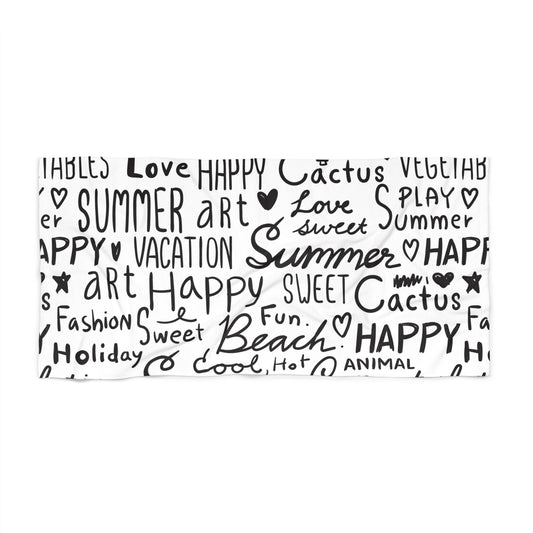 TABLES Love HAPPY Cactus VEGETAB
er SUMMER art Love sweet Summer PLAY
APPY VACATION Summer HAPP
art Happy SWEET Cactus
Fashion Sweet Fun. Beach. HAPPY Fa
Holiday Cool, Hot ANIMAL H